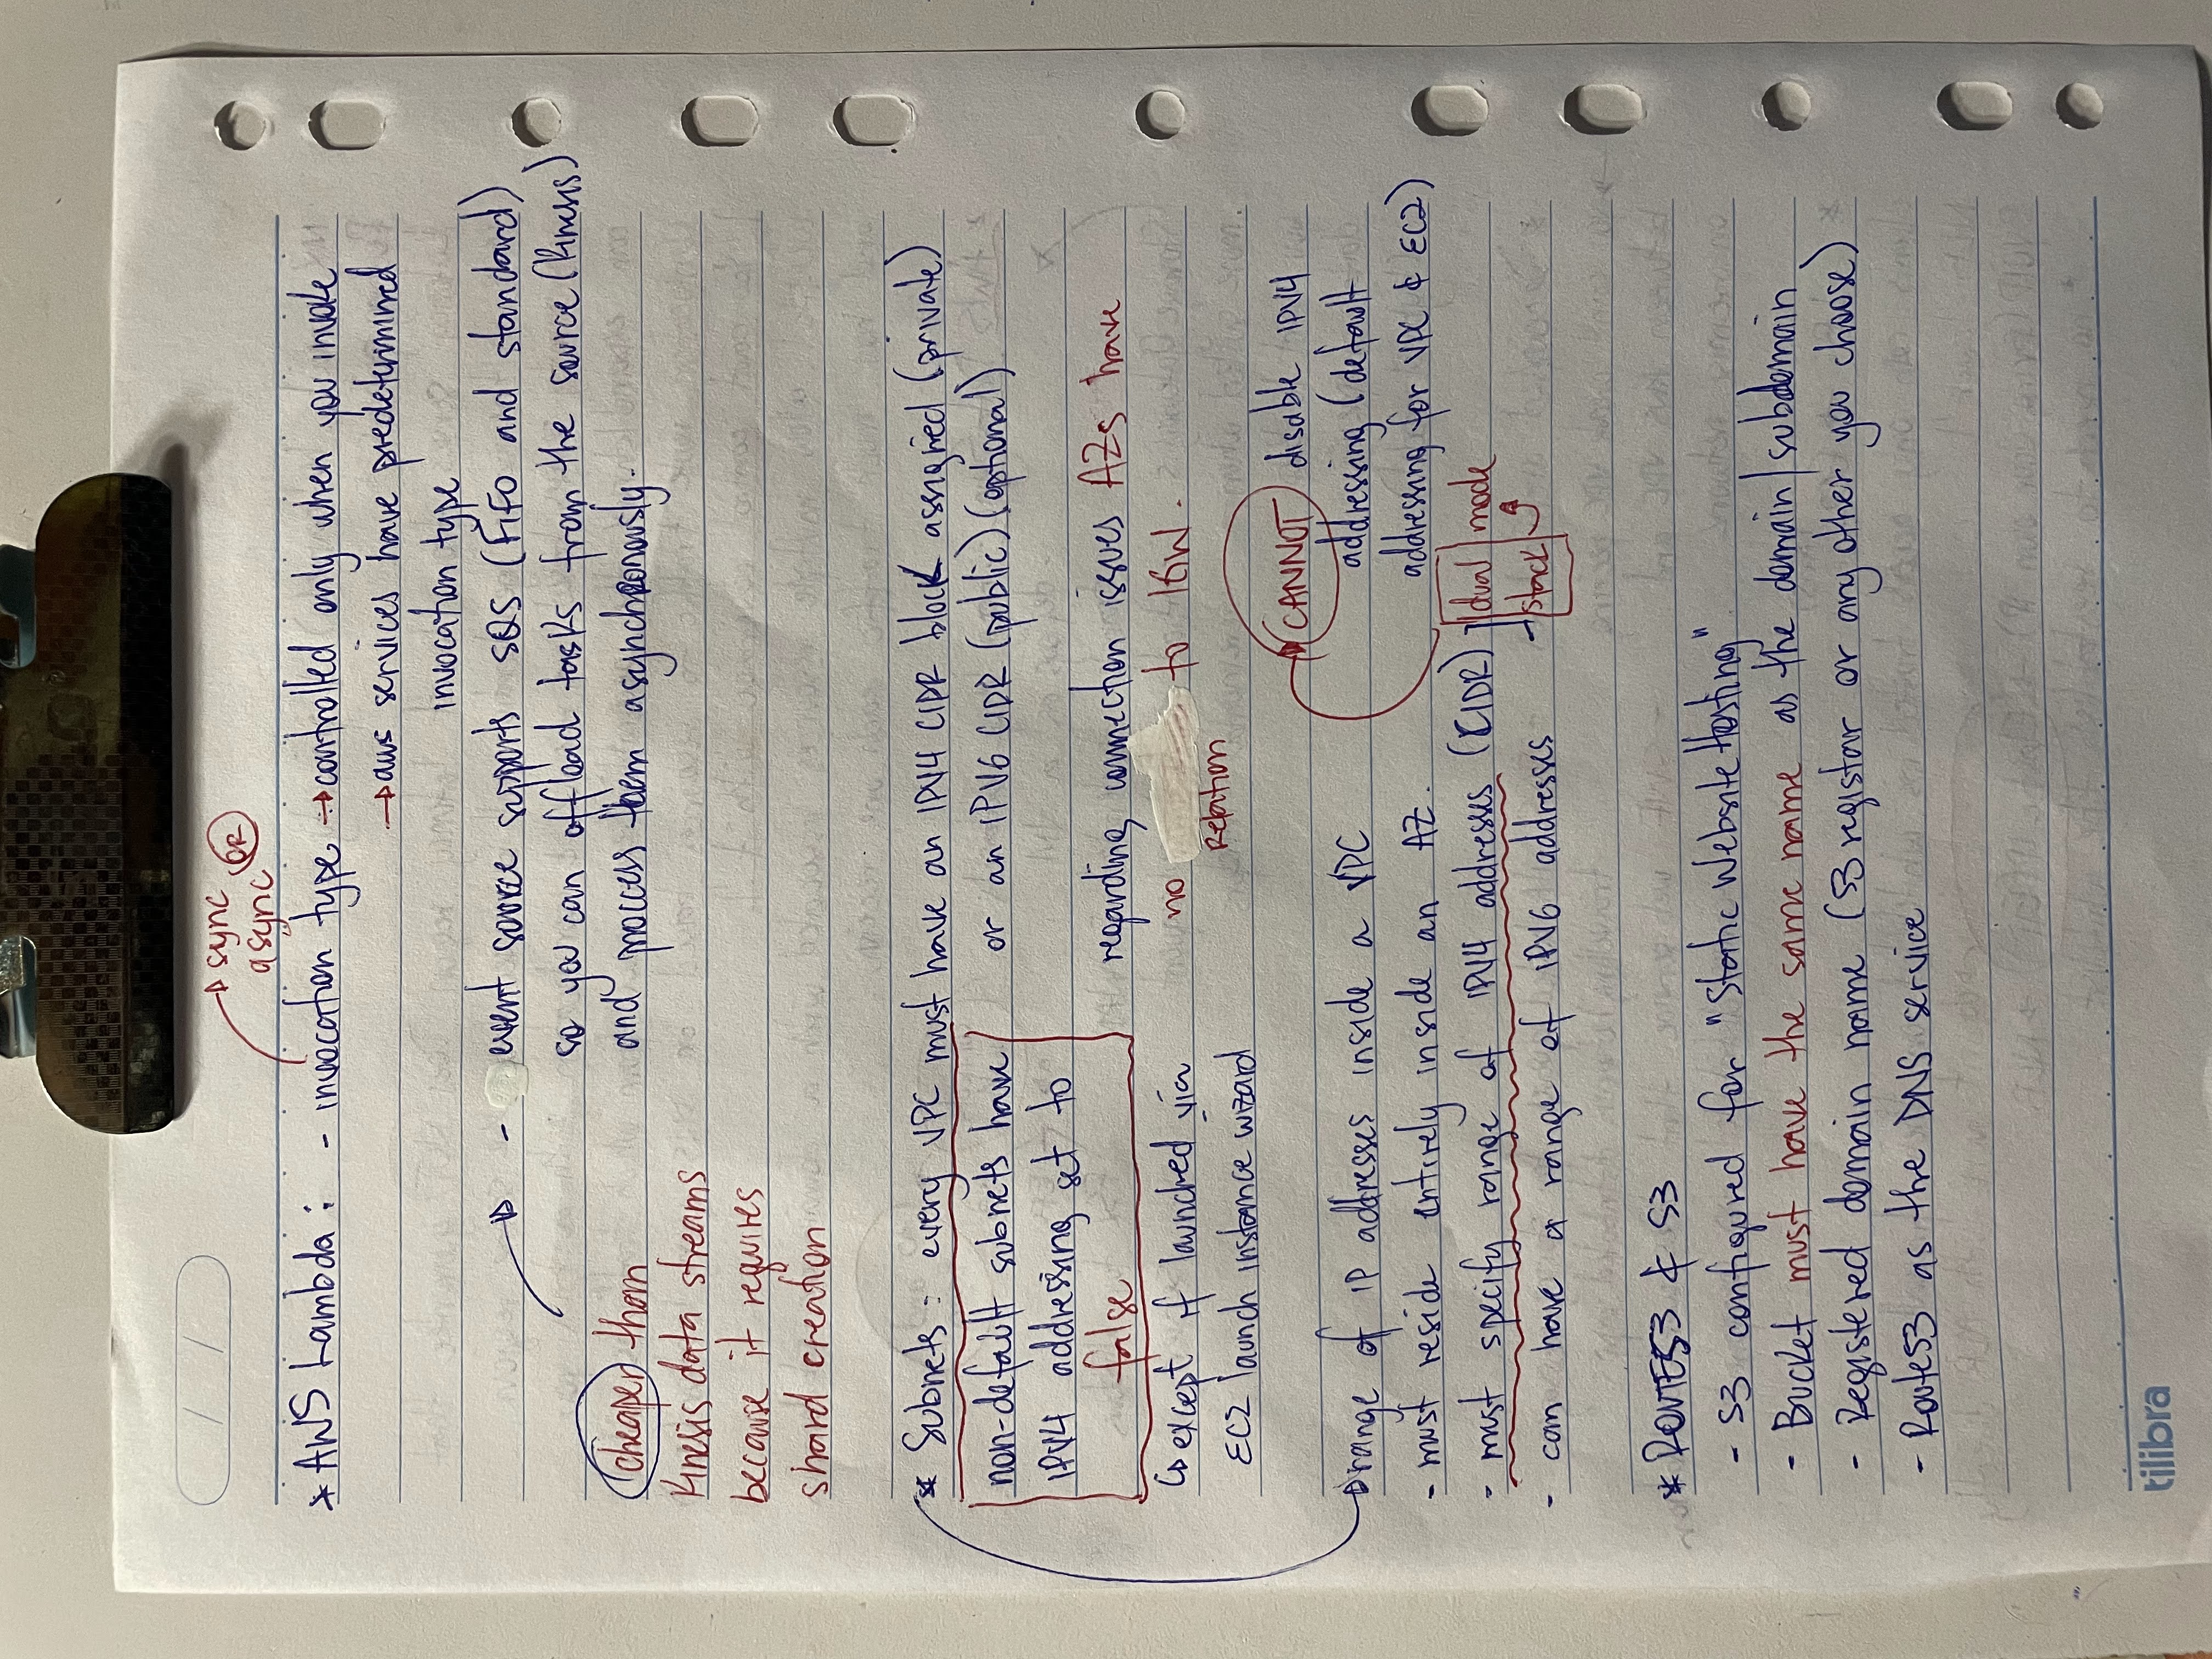 sync
OR
async
* AWS Lambda: - invocation type → controlled only when you invoke
→ aws services have predetermined
invocation type
- event source supports SQS (FiFO and standard)
so you can offload tasks from the source (Kinesis)
and proccess them asynchronously.
cheaper than
Kinesis data streams
because it requires
shard creation
* Subnets: every VPC must have an IPV4 CIDR block assigned (private)
or an IPV6 CIDR (public) (optional)
non-default subnets have
IPV4 addressing set to
false
↳ except if launched via
EC2 launch instance wizard
regarding connection issues AZs have
no relation to IGW.
→ range of IP addresses inside a VPC
- must reside entirely inside an AZ.
- must specify range of IPV4 addresses (CIDR)
- can have a range of IPV6 addresses
dual mode
stack
CANNOT disable IPV4
addressing (default
addressing for VPC & EC2)
* ROUTE53 & S3
- S3 configured for "Static Website Hosting"
- Bucket must have the same name as the domain/subdomain
- Registered domain name (53 registar or any other you choose)
- Route53 as the DNS service
tilibra